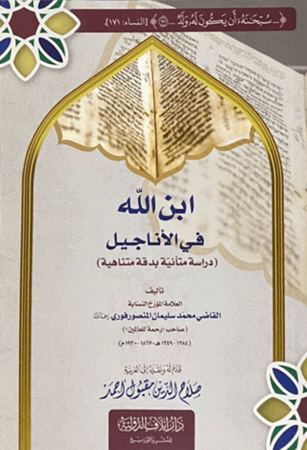 ﴿... سُبْحَٰنَهُۥٓ أَن يَكُونَ لَهُۥ وَلَدٌ ... ﴾ [النساء: ١٧١]
ابن الله
في الأناجيل
(دراسة متأنية بدقة متناهية)
تأليف
العلامة المؤرخ النسابة
القاضي محمد سليمان المنصورفوري
(صاحب «رحمة للعالمين»)
(١٢٨٤-١٣٤٩هـ = ١٨٦٧-١٩٣٠م)
قدم له ونقله إلى العربية
صلاح الدين مقبول أحمد
دار إيلاف الدولية
للنشر والتوزيع